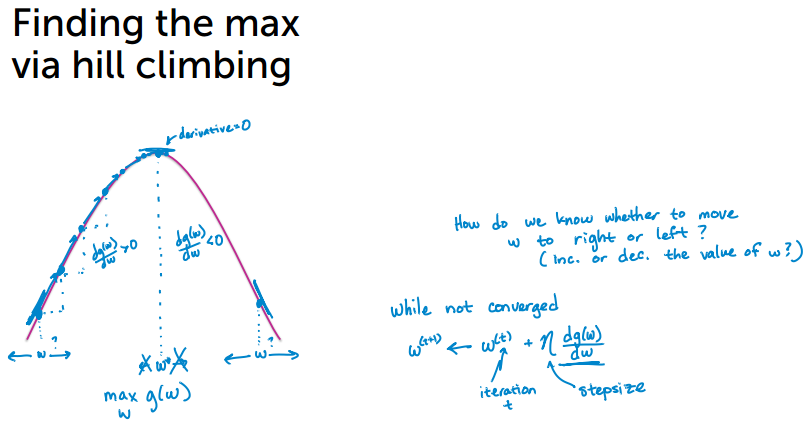 Finding the max
via hill climbing
derivative=0
dg(w)/dw >0
dg(w)/dw <0
← w ?→
w*
← w ?→
max g(w)
w
How do we know whether to move
w to right or left ?
(inc. or dec. the value of w?)
while not converged
w^(t+1) ← w^(t) + η dg(w)/dw
iteration
t
stepsize